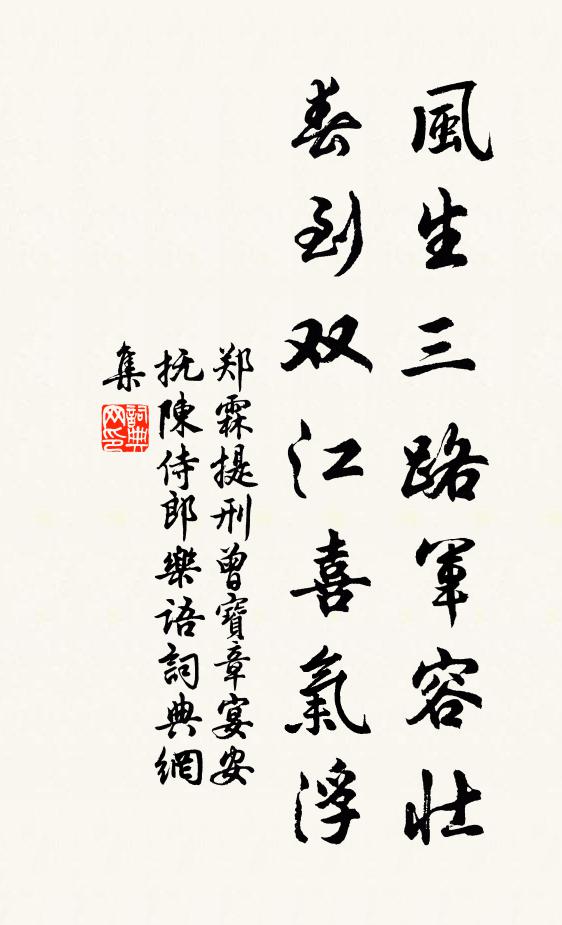 風生三路軍容壯
春到双江喜氣浮
郑霖提刑曾寶章宴安
抚陳侍郎樂語詞典網
集
詞典
网印